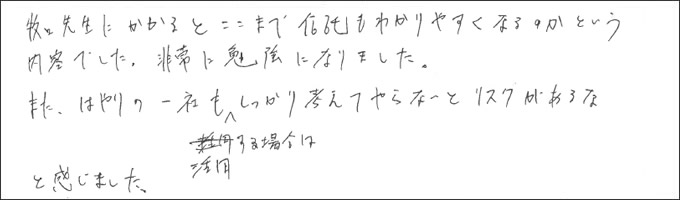 牧口先生にかかるとここまで信託もわかりやすくなるのかという
内容でした。非常に勉強になりました。
また、はやりの一社もしっかり考えてやらないとリスクがあるな
活用する場合は
と感じました。